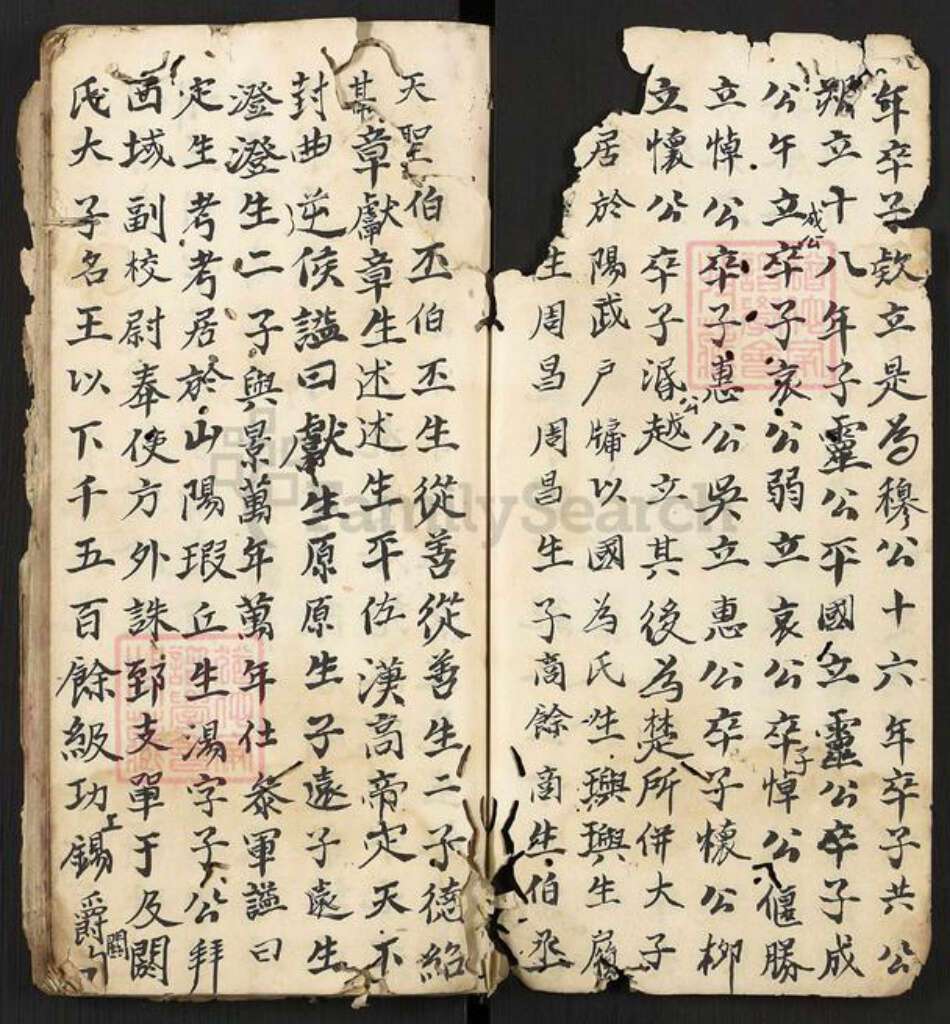 年卒子欵立是為穆公十六年卒子共公
朔立十八年子靈公平國立靈公卒子成
公午立成公卒子哀公弱立哀公卒子悼公偃勝
立悼公卒子惠公吳立惠公卒子懷公柳
立懷公卒子湣公越立其後為楚所併大子
居於陽武戶牖以國為氏生璵璵生履
生周昌周昌生子商餘商生伯丞
天聖伯丕伯丕生從善從善生二子德紹
其章獻章生述述生平佐漢高帝定天下
封曲逆侯謚曰獻生原原生子遠子遠生
澄澄生二子與景萬年萬年仕叅軍謚曰
定生考考居於山陽瑕丘生湯字子公拜
西域副校尉奉使方外誅郅支單于及閼
氏大子名王以下千五百餘級功錫爵關
FamilySearch